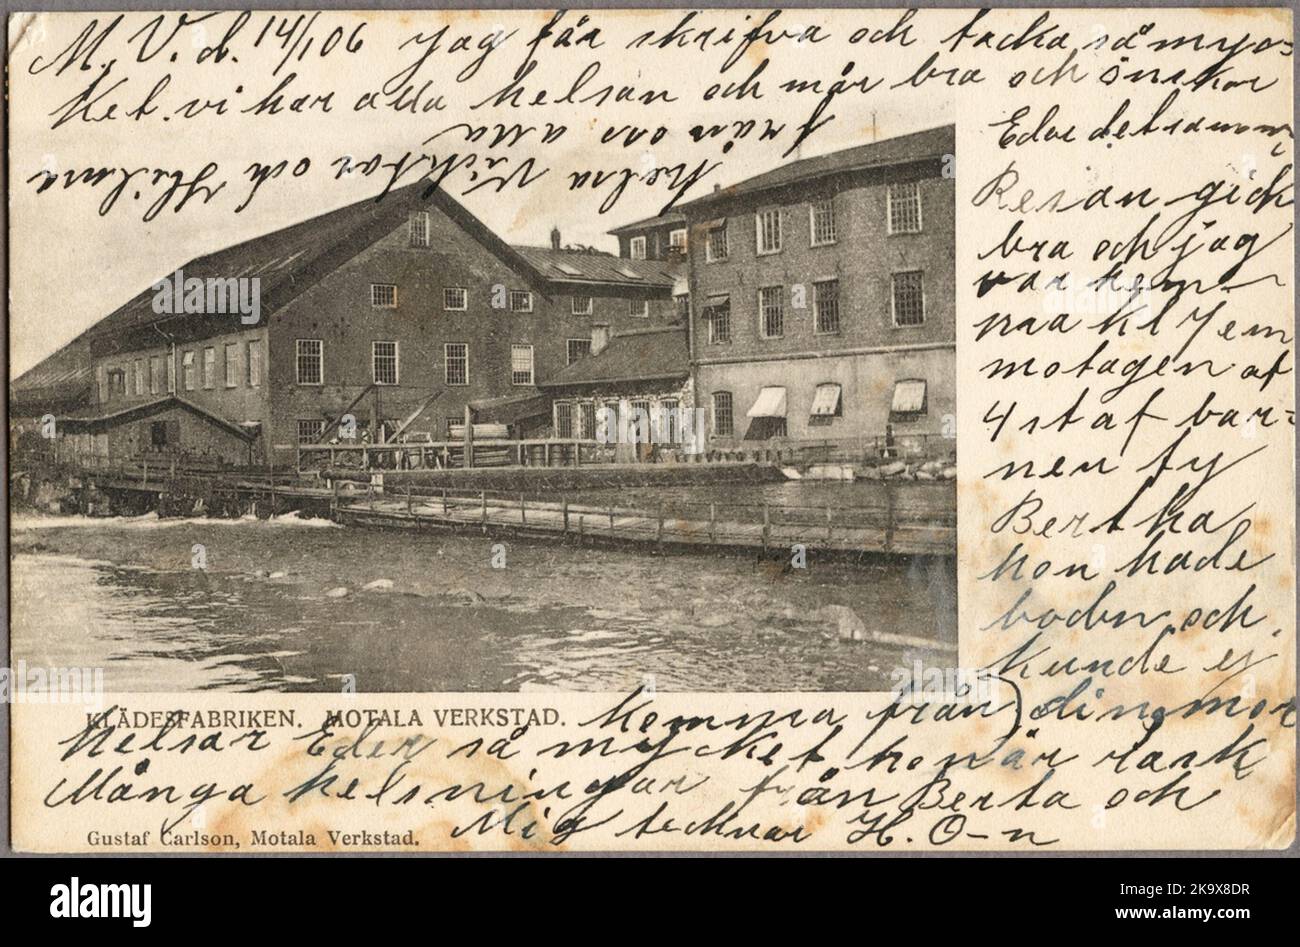 M. V. d. 14/1 06 Jag får skrifva och tacka så myc=
ket. vi har alla helsan och mår bra och önskar
Eder detsamma
Resan gick
bra och jag
var hem-
maa kl 7 em
motagen af
4 st af bar=
nen ty
Bertha
hon hade
boden och
kunde ej
komma från) din mor
helsar Eder så mycket hon är rask
Många helsningar från Berta och
Mig tecknar H. O-n
Helsa Vicktor och Hilma
från oss alla
KLÄDESFABRIKEN. MOTALA VERKSTAD.
Gustaf Carlson, Motala Verkstad.
alamy
Image ID: 2K9X8DR
www.alamy.com